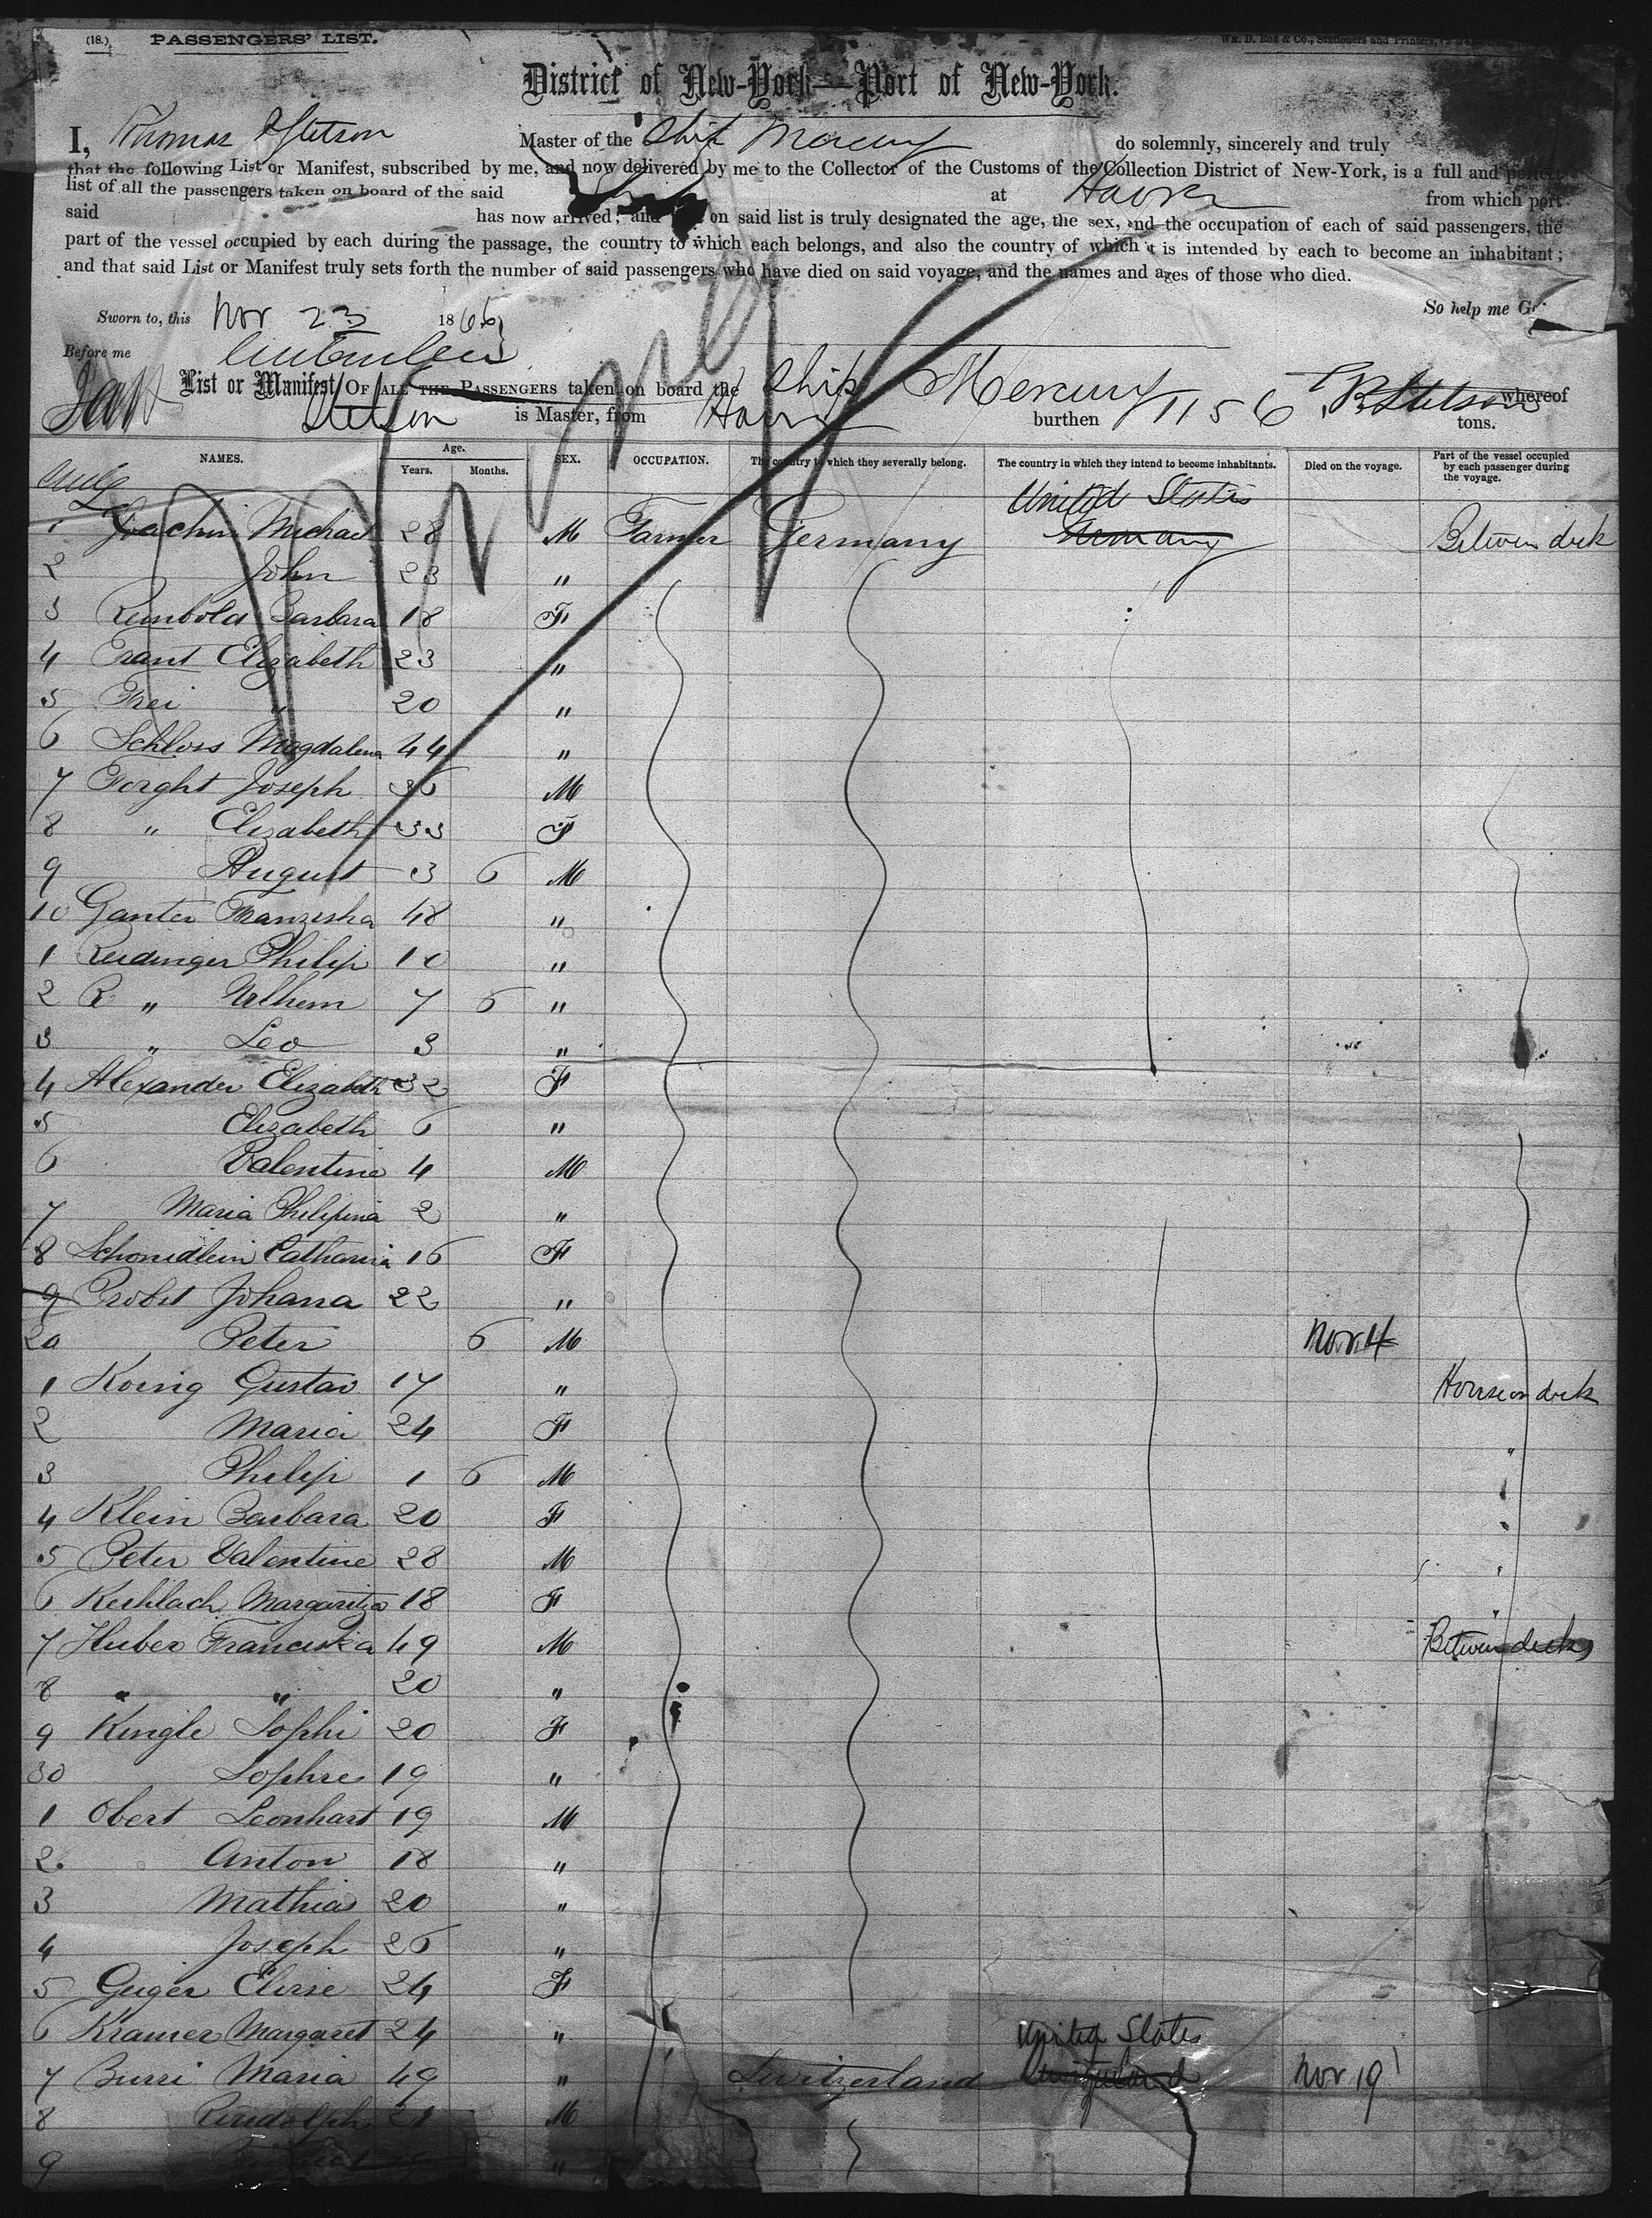 (18.) PASSENGERS' LIST.
Wm. D. Roe & Co., Stationers and Printers,
District of New-York—Port of New-York.
I, Thomas Stetson Master of the Ship Mercury do solemnly, sincerely and truly
that the following List or Manifest, subscribed by me, and now delivered by me to the Collector of the Customs of the Collection District of New-York, is a full and perfect
list of all the passengers taken on board of the said Ship at Havre from which port
said has now arrived; and on said list is truly designated the age, the sex, and the occupation of each of said passengers, the
part of the vessel occupied by each during the passage, the country to which each belongs, and also the country of which it is intended by each to become an inhabitant;
and that said List or Manifest truly sets forth the number of said passengers who have died on said voyage, and the names and ages of those who died.
So help me God
Sworn to, this Nov 23 1866
Before me
List or Manifest OF ALL THE PASSENGERS taken on board the Ship Mercury whereof
Stetson is Master, from Havre burthen 1156 tons.
NAMES. Age. Years. Months. SEX. OCCUPATION. The country to which they severally belong. The country in which they intend to become inhabitants. Died on the voyage. Part of the vessel occupied by each passenger during the voyage.
United States
1 Joachim Michael 28 M Farmer Germany Germany Between deck
2 John 23 "
3 Reinbold Barbara 18 F
4 Frant Elizabeth 23 "
5 Frei " 20 "
6 Schloss Magdalena 44 "
7 Forght Joseph 36 M
8 " Elizabeth 33 F
9 August 3 6 M
10 Ganter Franziska 48 "
1 Reidinger Philip 10 "
2 R " Wilhem 7 6 "
3 " Leo 3 "
4 Alexander Elizabeth 32 F
5 Elizabeth 6 "
6 Valentine 4 M
7 Maria Philipina 2 "
8 Schonidlein Catharina 16 F
9 Probst Johana 22 "
20 Peter 6 M Nov. 4
1 Konig Gustav 17 " House on deck
2 Maria 24 F "
3 Philip 1 6 M
4 Klein Barbara 20 F
5 Peter Valentine 28 M
6 Keshlach Margaritia 18 F
7 Huber Franciska 49 M Between decks
8 " " 20 "
9 Kingle Sophi 20 F
30 Sophie 19 "
1 Obert Leonhart 19 M
2 Anton 18 "
3 Mathias 20 "
4 Joseph 26 "
5 Geiger Elise 24 F
6 Kramer Margaret 24 " United States
7 Burri Maria 49 " Switzerland Switzerland Nov 19
8 Rudolph 21 M
9 "